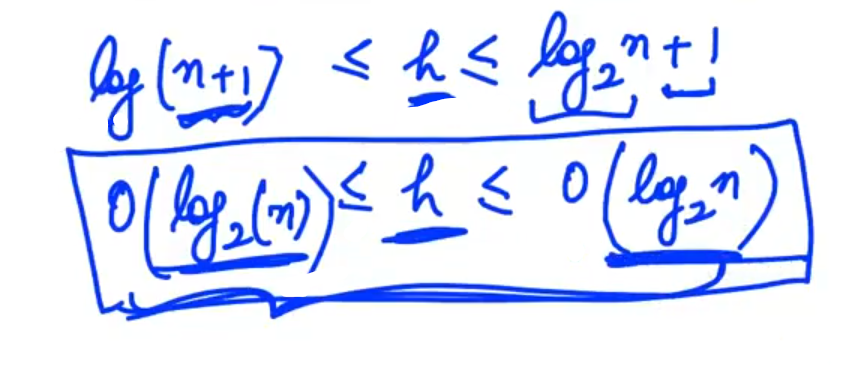 log(n+1) ≤ h ≤ log₂n+1
O(log₂(n)) ≤ h ≤ O(log₂n)